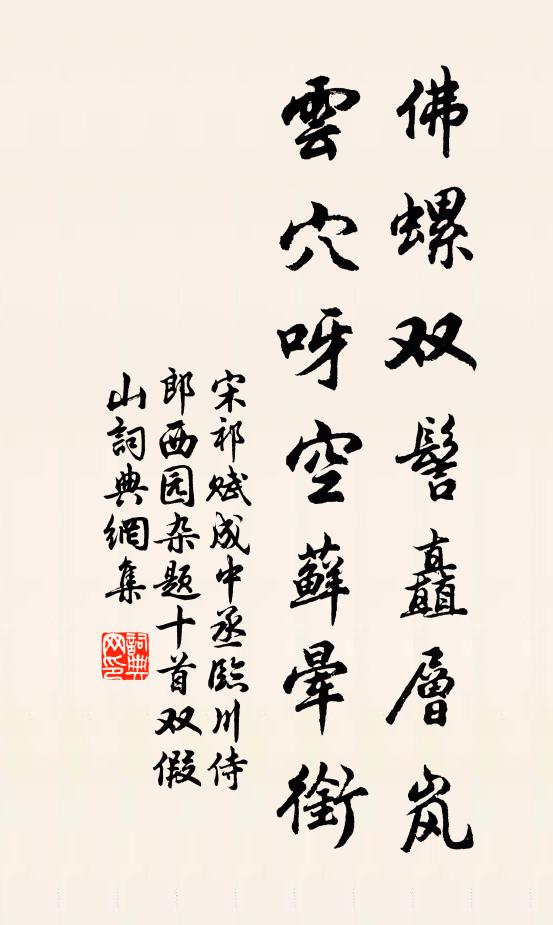 佛螺双髻矗層岚
雲穴呀空蘚暈銜
宋祁赋成中丞臨川侍
郎西园杂题十首双假
山詞典網集
詞典网印